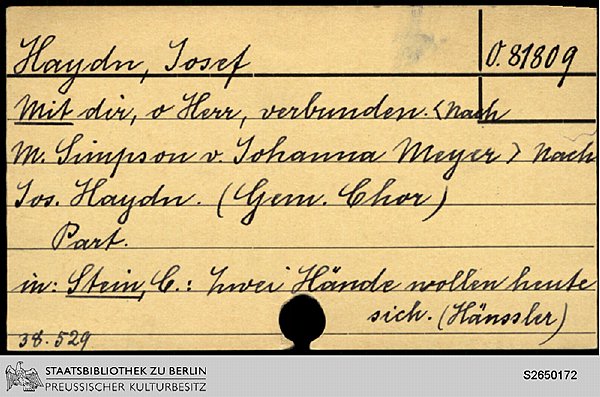 Haydn, Josef
O. 81809
Mit dir, o Herr, verbunden. <Nach
M. Simpson v. Johanna Meyer> Nach
Jos. Haydn. (Gem. Chor)
Part.
in: Stein, C.: Zwei Hände wollen heute
sich. (Hänssler)
38.529
STAATSBIBLIOTHEK ZU BERLIN
PREUSSISCHER KULTURBESITZ
S2650172